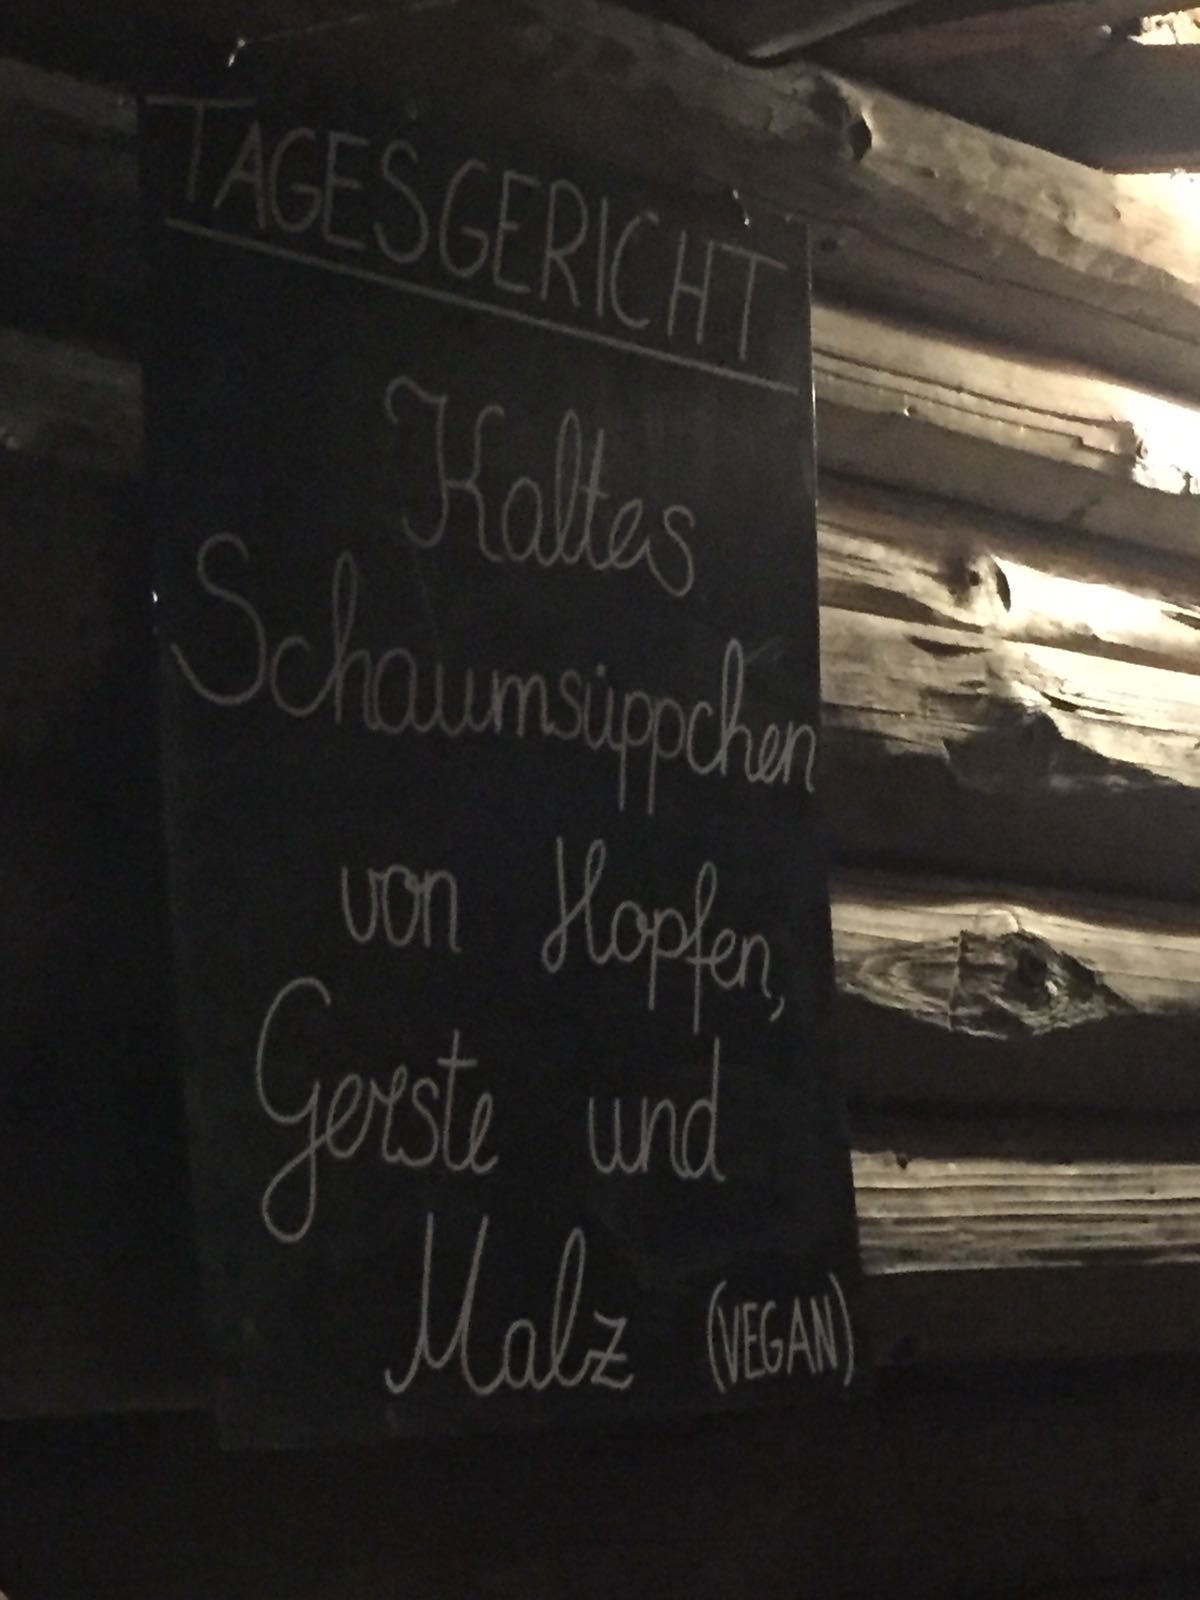 TAGESGERICHT
Kaltes
Schaumsüppchen
von Hopfen,
Gerste und
Malz (VEGAN)